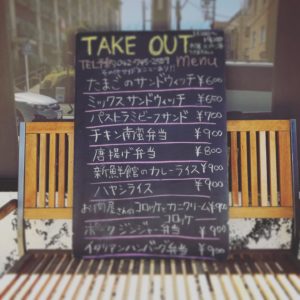 TAKE OUT
Menu
たまごのサンドウィッチ ¥600
ミックスサンドウィッチ ¥650
パストラミビーフサンド ¥700
チキン南蛮弁当 ¥900
唐揚げ弁当 ¥800
新鮮館のカレーライス ¥900
ハヤシライス ¥900
お肉屋さんのコロッケとカニクリームコロッケ ¥900
ポークジンジャー弁当 ¥900
イタリアンハンバーグ弁当 ¥900